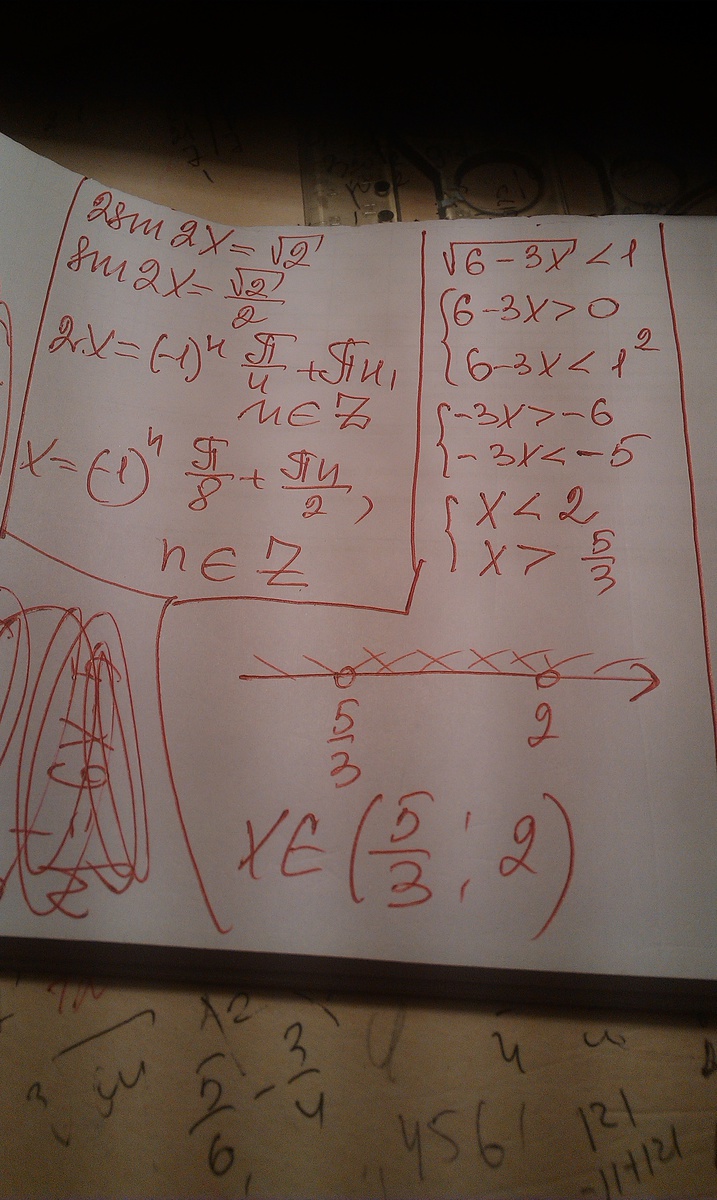 2sin2x = √2
sin2x = √2/2
2x = (-1)ⁿ π/4 + πn,
n ∈ Z
x = (-1)ⁿ π/8 + πn/2,
n ∈ Z
√(6-3x) < 1
{6-3x > 0
{6-3x < 1²
{-3x > -6
{-3x < -5
{x < 2
{x > 5/3
5/3 2
x ∈ (5/3; 2)
5/6 - 3/4
456
121
-11+121